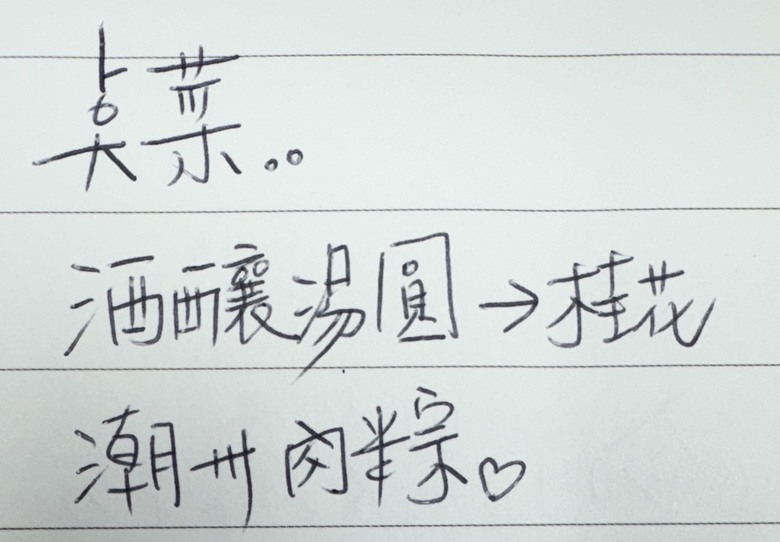 点菜..
酒釀湯圓→桂花
潮州肉粽♡